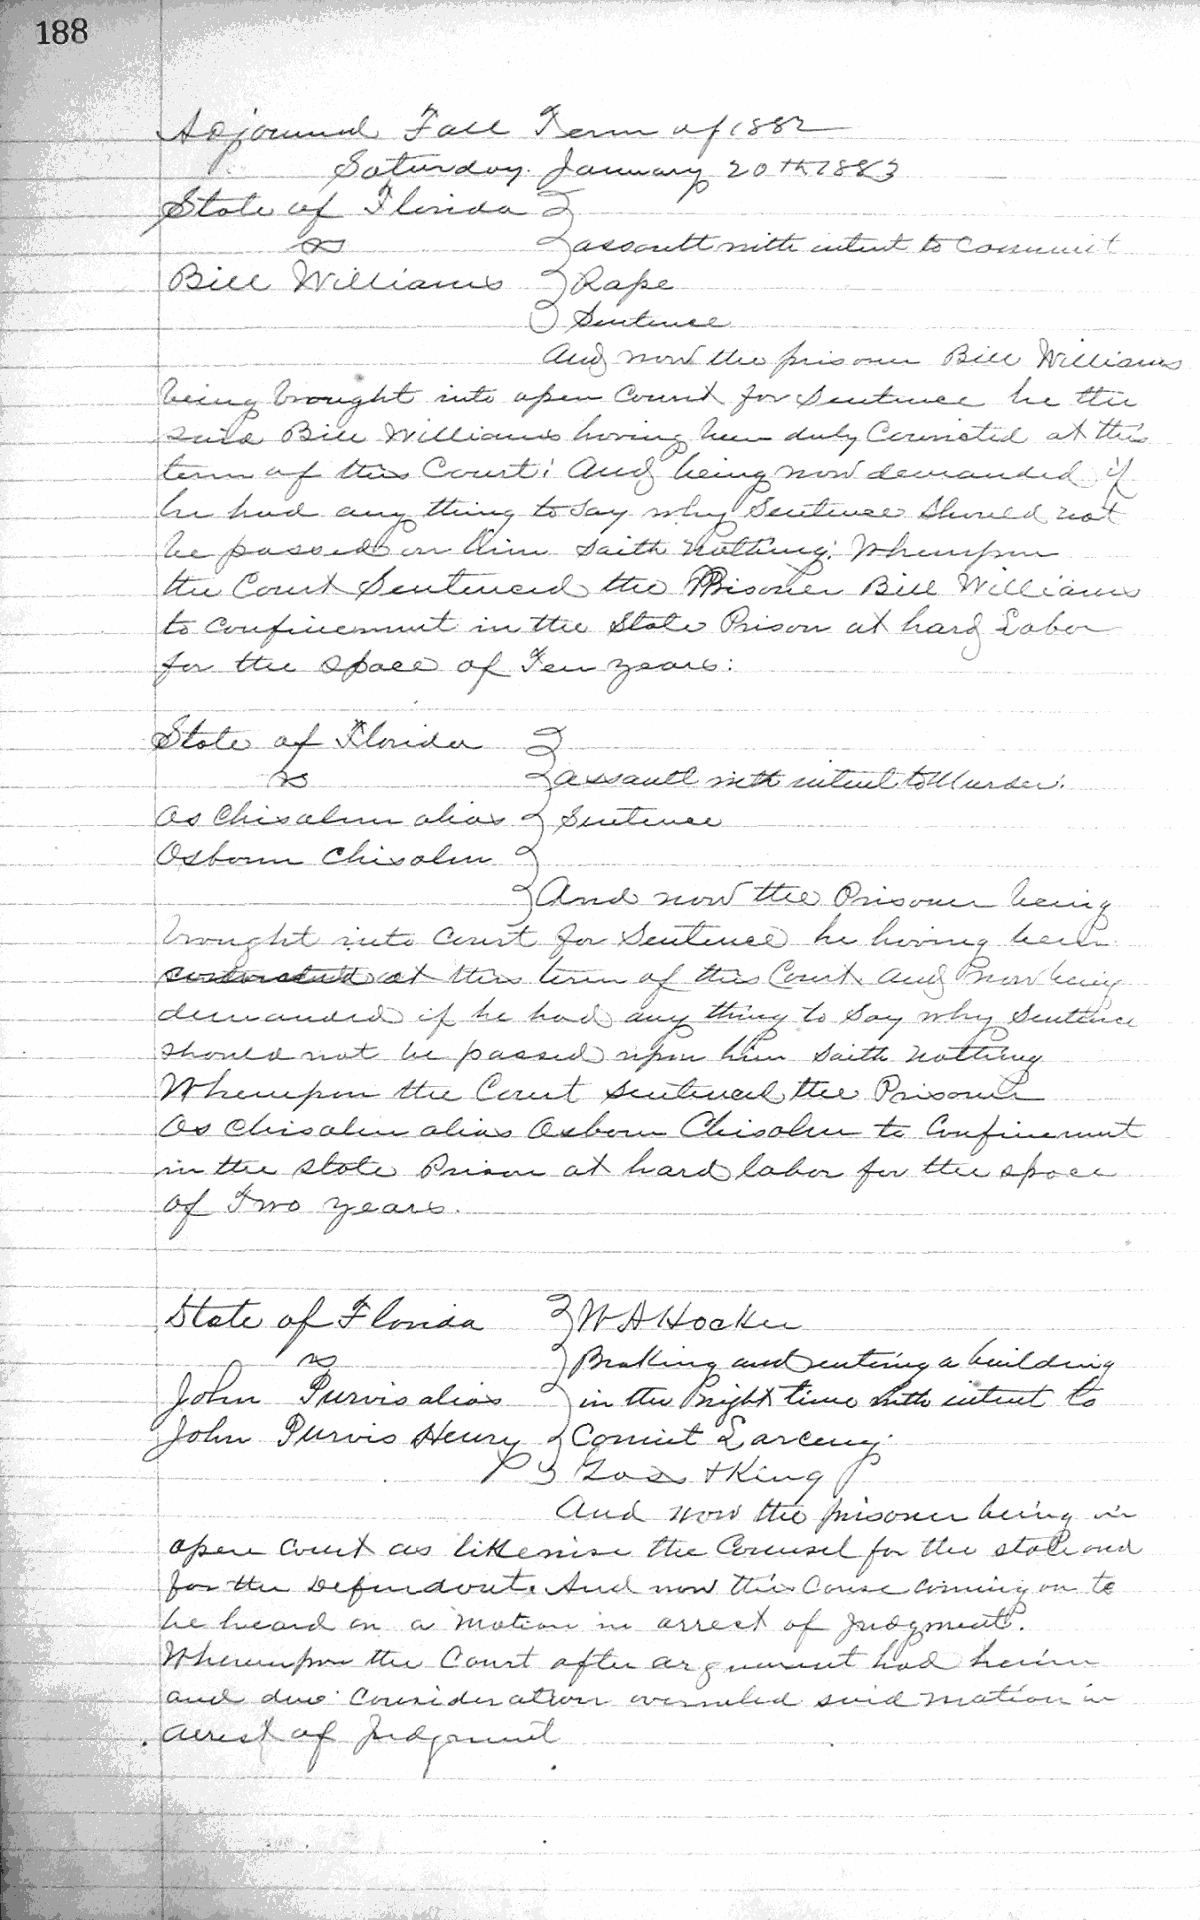 188
Adjourned Fall Term of 1882
Saturday January 20th 1883
State of Florida
vs
assault with intent to Commit
Bill Williams Rape
Sentence
And now the prisoner Bill Williams
being brought into open Court for Sentence he the
said Bill Williams having been duly Convicted at this
term of this Court: And being now demanded if
he had any thing to say why Sentence Should not
be passed on him saith Nothing: Whereupon
the Court Sentenced the Prisoner Bill Williams
to confinement in the State Prison at hard Labor
for the space of Ten years:
State of Florida
vs assault with intent to Murder:
Os Chisolm alias Sentence
Osborn Chisolm
And now the Prisoner being
brought into Court for Sentence he having been
at this term of this Court and now being
demanded if he had any thing to Say why Sentence
should not be passed upon him saith nothing
Whereupon the Court sentenced the Prisoner
Os Chisolm alias Osborn Chisolm to Confinement
in the State Prison at hard labor for the space
of Two years.
State of Florida W A Hocker
vs Braking and entering a building
John Purvis alias in the night time with intent to
John Purvis Henry Comit Larceny.
& King
And now the prisoner being in
open Court as likewise the Counsel for the state and
for the Defendant. And now this Cause coming on to
be heard on a Motion in arrest of Judgment.
Whereupon the Court after argument had herein
and due consideration overruled said motion in
arrest of Judgment